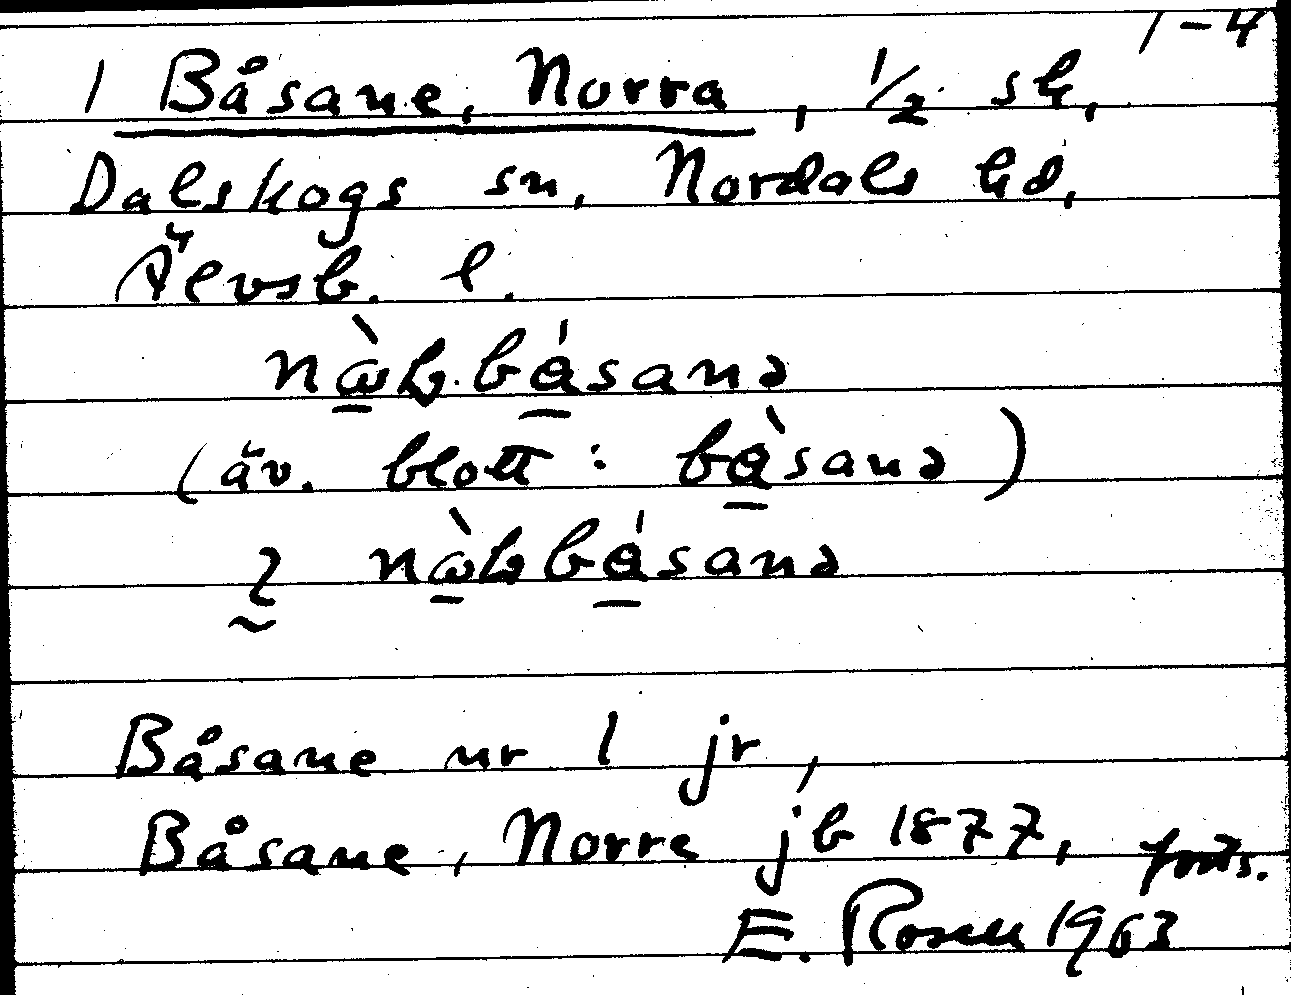 1-4
1 Båsane, Norra, 1/2 sk,
Dalskogs sn, Nordals hd,
Älvsb. l.
(äv. blott: bå̀sanə)
Båsane nr 1 jr,
Båsane, Norre jb 1877, forts.
E. Rosell 1963